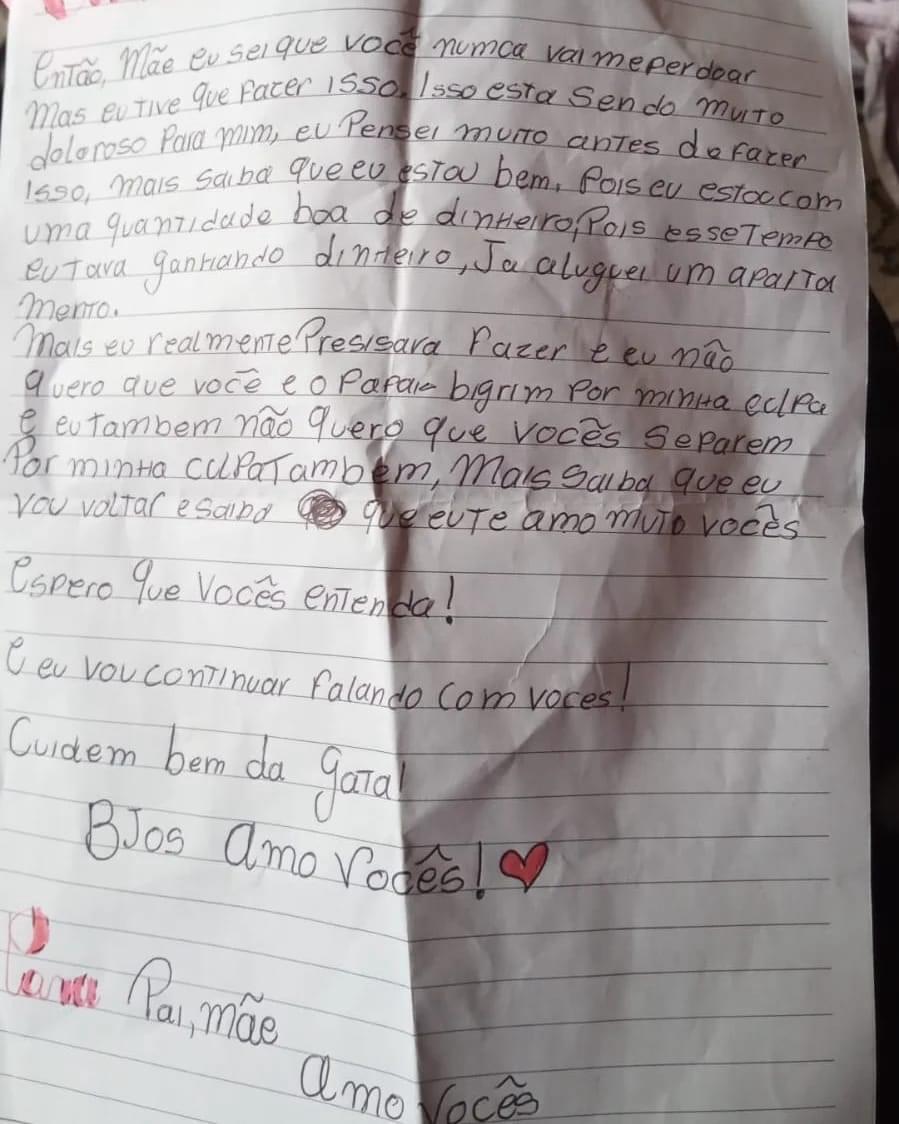 Então, Mãe eu sei que você numca vai me perdoar
Mas eu tive que facer isso. Isso esta sendo muito
doloroso para mim, eu Pensei muito antes de facer
Isso, mais saiba que eu estou bem, Pois eu estou com
uma quantidade boa de dinheiro, Pois esse Tempo
eu Tava ganhando dinheiro, Ja aluguei um aparta
mento.
Mais eu realmente Presisara Fazer e eu não
quero que você e o Papai bigrim Por minha eclpa
E eu tambem não quero que vocês separem
Por minha culpa Tambem, Mais saiba que eu
vou voltar e saiba que eu Te amo muto vocês
Espero que vocês entenda!
E eu vou continuar falando com voces!
Cuidem bem da gata!
BJos amo vocês!
Para Pai, mãe
amo vocês